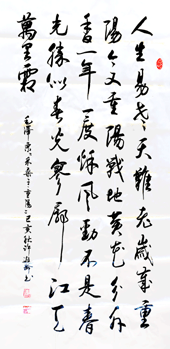 人生易老天難老歲歲重
陽今又重陽戰地黄花分外
香一年一度秋風勁不是春
光勝似春光寥廓江天
萬里霜
毛澤東采桑子重陽己亥秋許書